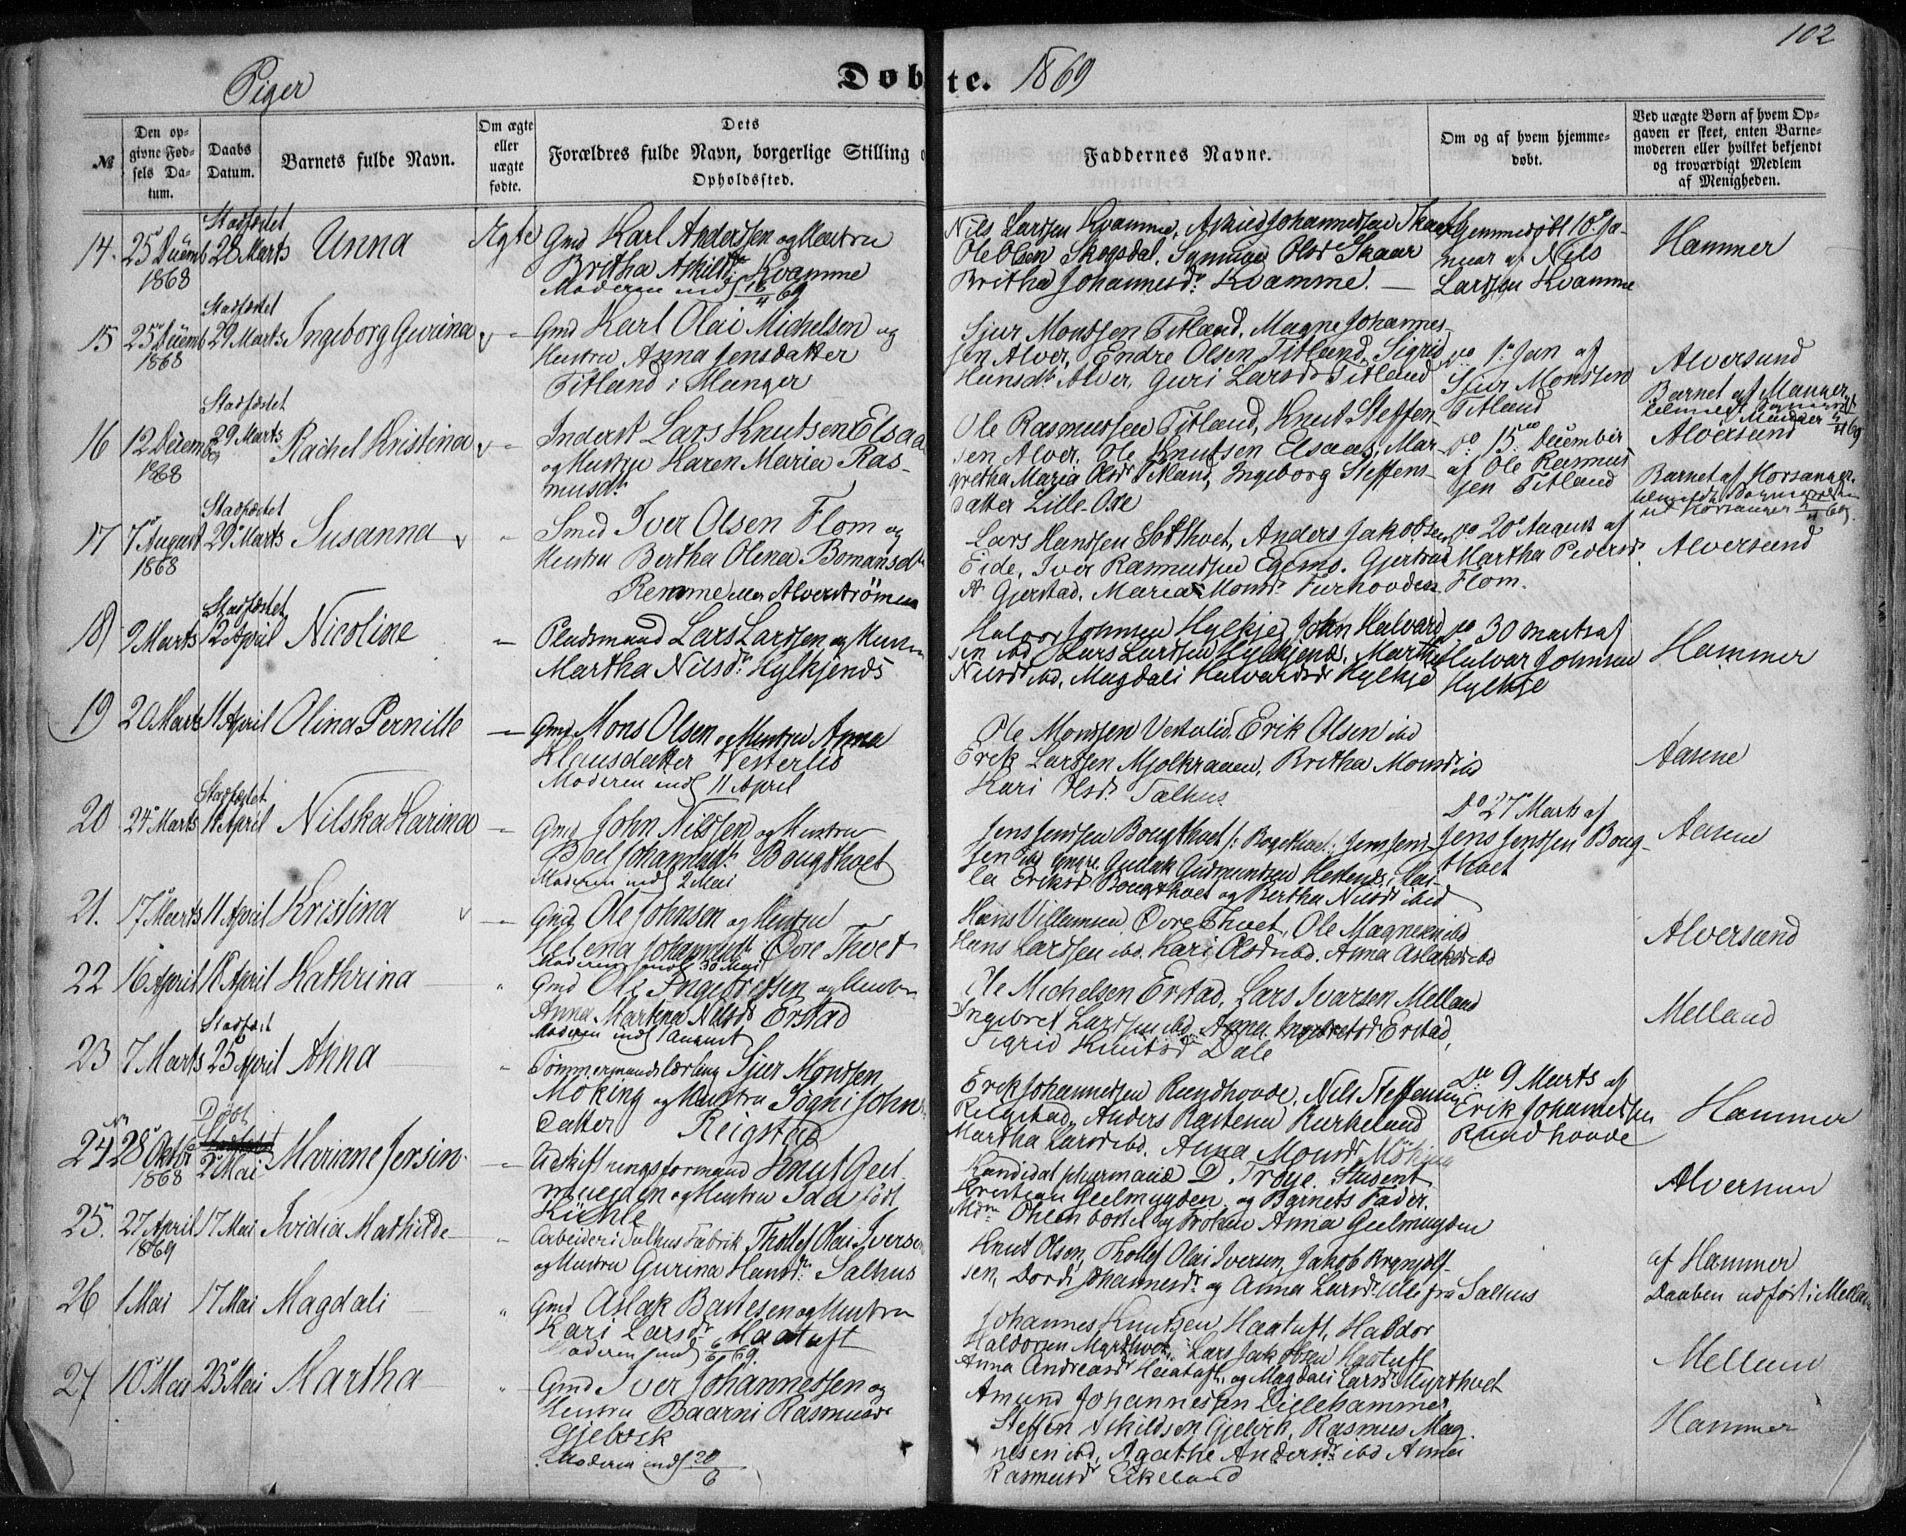 102
Piger
Døbte. 1869
№
Den opgivne Fødsels Datum.
Daabs Datum.
Barnets fulde Navn.
Om ægte eller uægte fødte.
Dets Forældres fulde Navn, borgerlige Stilling o
Opholdssted.
Faddernes Navne.
Om og af hvem hjemmedøbt.
Ved uægte Børn af hvem Opgaven er skeet, enten Barnemoderen eller hvilket bekjendt og troværdigt Medlem af Menigheden.
14. 25 Decemb 1868 Stadfæstet 28 Marts Unna Ægte
Gmd Karl Anderssen og Hustru
Britha Askildsdr Kvamme
Moderen indl 18/4 69
Nils Larssen Kvamme, Askild Johannessen Skaar
Ole Olsen Skogsdal. Olsdr Skaar
Britha Johannesdr Kvamme. —
Hjemmedøbt 10 Januar af Nils
Larssen Kvamme
Hammer
15 25 Decemb 1868 Stadfæstet 29 Marts Ingeborg Gurina
Gmd Karl Olai Michelsen og
Hustru Anna Jensdatter
Titland i Manger
Sjur Monssen Titland. Magne Johannes-
sen Alver, Endre Olsen Titland, Sigrid
Hansdr Alver, Guri Larsdr Titland
Do 1 Jan af
Sjur Monssen
Titland
Alversund
Barnet af Manger
16 12 Decemb 1868 Stadfæstet 29 Marts Rachel Kristina
Inderst Lars Knutsen Elsaas
og Hustru Karen Maria Ras-
musdr
Ole Rasmussen Titland, Knut Steffen-
sen Alver, Ole Knutsen Elsaas, Mar-
gretha Maria Olsdr Titland, Ingeborg Steffens-
datter Lille-Ose
Do 15 Decembir
af Ole Rasmus
sen Titland
Alversund
Barnet af Hosanger
17 7 August 1868 Stadfæstet 29 Marts Susanna
Smed Iver Olsen Flom og
Hustru Bertha Olena Bomansdr
Remme Alverströmen
Lars Hanssen Anders Jakobsen
Eide, Iver Rasmussen Gjertrud
A Gjerstad, Maria Monsdr Furhovden
Do 20 August af
Martha Pedersdr
Flom.
Alversund
18) 9 Marts Stadfæstet 12 April Nicoline —
Pladsmand Lars Larssen og Hus
Martha Nilsdr Hylkjenes
Halvor Johnsen Hylkje, John Halvard
sen ibd Lars Larssen Hylkjenes, Martha
Nilsdr ibd, Magdali Halvardsdr Hylkje
Do 30 marts af
Halvar Johnsen
Hylkje
Hammer
19 20 Marts 11 April Olina Pernille —
Gmd Mons Olsen og Hustru Anna
Klausdatter Vesterlid
Moderen indl 11 April
Ole Monssen Vesterlid, Erik Olsen ibd
Erik Larssen Mjelkraaen, Britha Monsdr ibd
Kari Olsdr Salhus
Aasene
20 24 Marts Stadfæstet 11 April Nilska Karina —
Gmd John Nilssen og Hustru
Johannesdr Bougthvet
Moderen indl 2 Mai
Jens Jenssen Bougthvet
Gudmundsen
Eriksdr Bougthvet og Bertha Nilsdr ibid
Do 27 Marts af
Jens Jenssen Boug-
thvet
Aasene
21. 17 Marts 11 April Kristina —
Gmd Ole Johnsen og Hustru
Helena Johannesdr Øvre Thvet
Moderen indl 30 Mai
Hans Villumsen, Øvre Thvet, Ole Magnesen ibd
Hans Larssen ibd, Kari Olsdr ibd, Anna Aslaksdr ibd
Alversund
22 16 April 18 April Kathrina
Gmd Ole Ingebretsen og Hustru
Anna Martina Nilsdr Erstad
Moderen indl 1 August
Ole Michelsen Erstad, Lars Ivarsen Melland
Ingebret Larssen ibd. Anna Ingebretsdr Erstad,
Sigrid Knutsdr Dale
Melland
23 7 Marts Stadfæst 25 April Anna
Tömmermandslærling Sjur Monssen
Möking og Hustru Sogni Johns
datter Reigstad
Erik Johannessen Rundhovde, Nils Steffensen
Reigstad, Anders Rastesen Kurkeland
Martha Larsdr ibd, Anna Monsdr Möking
Do 9 Marts af
Erik Johannessen
Rundhovde
Hammer
24 28 Oktbr 1868 Døbt 2 Mai Mariane Jersin —
Udskiftningsformand Knut Geel
muyden og Hustru Ida født
Kühle
Kandidat pharmaciæ D. Trøye. Student
Kristian Geelmuyden og Barnets Fader.
og Frøken Anna Geelmuyden
Alversun
25. 27 April 1869 17 Mai Ividia Mathilde —
Arbeider i Salhus Fabrik Thollef Olai Iverse
og Hustru Gurina Hansdr Salhus
Knut Olsen, Thollef Olai Iversen, Jakob Brynjolf-
sen, Dordi Johannesdr og Anna Larsdr alle fra Salhus
af Hammer
Daaben udført i Mellan
26 1 Mai 17 Mai Magdali
Gmd Aslak Bastesen og Hustru
Kari Larsdr Haatuft
Moderen indl 6/6 69.
Johannes Knutsen Haatuft, Haldor
Haldorsen Myrthvet, Lars Jakobsen Haatuft
Anna Andreasdr Haatuft, og Magdali Larsdr Myrthvet
Mellan
27 10 Mai 23 Mai Martha
Gmd Iver Johannessen og
Hustru Baarni Rasmusdr
Gjelvik
Moderen indl 20/6
Amund Johannessen Lillehammer,
Steffen Askildsen Gjelvik, Rasmus Mag-
nesen ibd, Agathe Andersdr ibd Anna
Rasmusdr Eikeland
Hammer